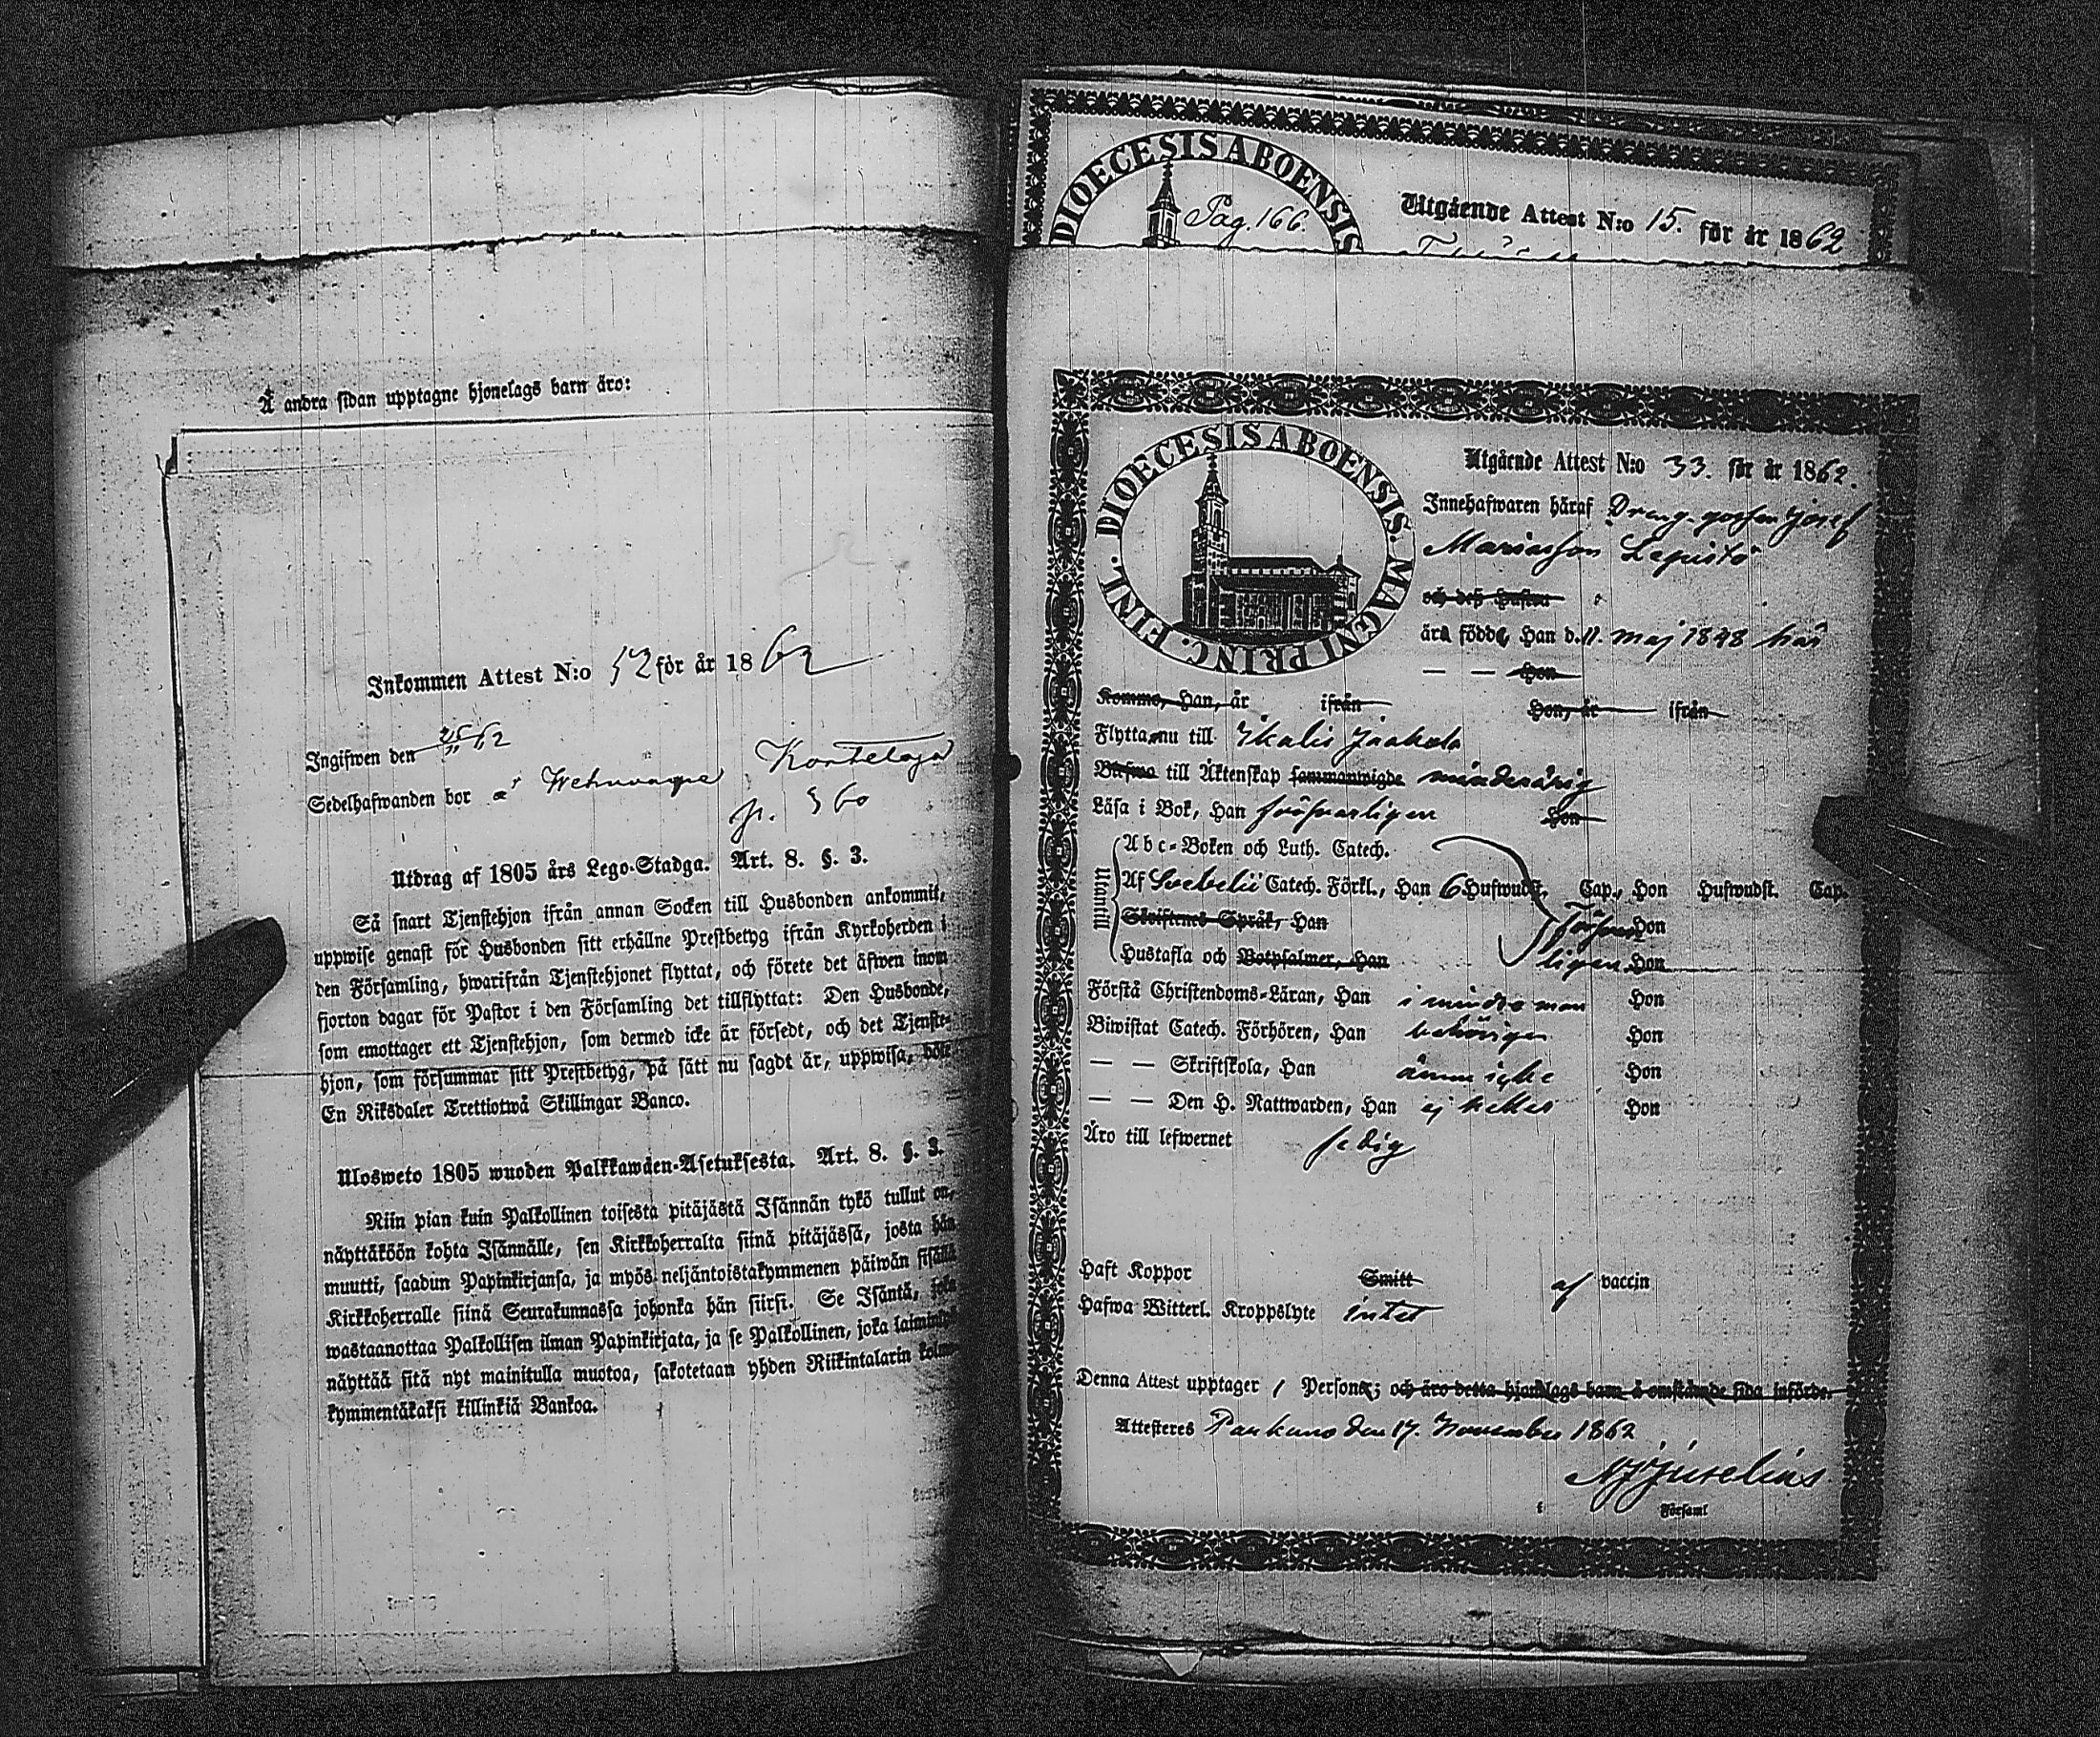 Å andra sidan upptagne hjonelags barn äro:
Inkommen Attest N:o 52 för år 1862
Ingifwen den 25/11 62
Sedelhafwanden bor
p. 560
Utdrag af 1805 års Lego-Stadga. Art. 8. §. 3.
Så snart Tjenstehjon ifrån annan Socken till Husbonden ankommit,
uppwise genast för Husbonden sitt erhållne Prestbetyg ifrån Kyrkoherden i
den Församling, hwarifrån Tjenstehjonet flyttat, och förete det äfwen inom
fjorton dagar för Pastor i den Församling det tillflyttat: Den Husbonde,
som emottager ett Tjenstehjon, som dermed icke är försedt, och det Tjenste-
hjon, som försummar sitt Prestbetyg, på sätt nu sagdt är, uppwisa, böte
En Riksdaler Trettiotwå Skillingar Banco.
Ulosweto 1805 wuoden Palkkawäen-Asetuksesta. Art. 8. §. 3.
Niin pian kuin Palkollinen toisesta pitäjästä Isännän tykö tullut on,
näyttäköön kohta Isännälle, sen Kirkkoherralta siinä pitäjässä, josta hän
muutti, saadun Papinkirjansa, ja myös neljäntoistakymmenen päiwän sisällä
Kirkkoherralle siinä Seurakunnassa johonka hän siirsi. Se Isäntä, joka
wastaanottaa Palkollisen ilman Papinkirjata, ja se Palkollinen, joka laiminlyö
näyttää sitä nyt mainitulla muotoa, sakotetaan yhden Riikintalarin kolme-
kymmentäkaksi killinkiä Bankoa.
DIOECESIS ABOENSIS
Pag. 166.
Utgående Attest N:o 15. för år 1862
DIOECESIS ABOENSIS. MAGNI PRINC. FINL.
Utgående Attest N:o 33. för år 1862.
Innehafwaren häraf Dreng-gossen Josef
Mariasson Lepistö
och deß Hustru
ära födde, Han d. 11. Maj 1848 här
— — Hon
Komme, Han, år ifrån Hon, år ifrån
Flytta nu till Ikalis Jaakola
Blefwo till Äktenskap sammanwigde minderårig
Läsa i Bok, Han försvarligen Hon
Utantill
Abc-Boken och Luth. Catech.
Af Svebelii Catech. Förkl., Han 6 Hufwudst. Cap., Hon Hufwudst. Cap.
Skriftenes Språk, Han Försvar Hon
Hustafla och Botpsalmer, Han ligen Hon
Förstå Christendoms-Läran, Han i mindre mon Hon
Biwistat Catech. Förhören, Han behörigen Hon
— — Skriftskola, Han ännu icke Hon
— — Den H. Nattwarden, Han ej heller Hon
Äro till lefwernet ledig
Haft Koppor Smitt af vaccin
Hafwa Witterl. Kroppslyte intet
Denna Attest upptager 1 Person; och äro detta hjonelags barn å omstående sida införde.
Attesteres Parkano den 17. November 1862
Församl